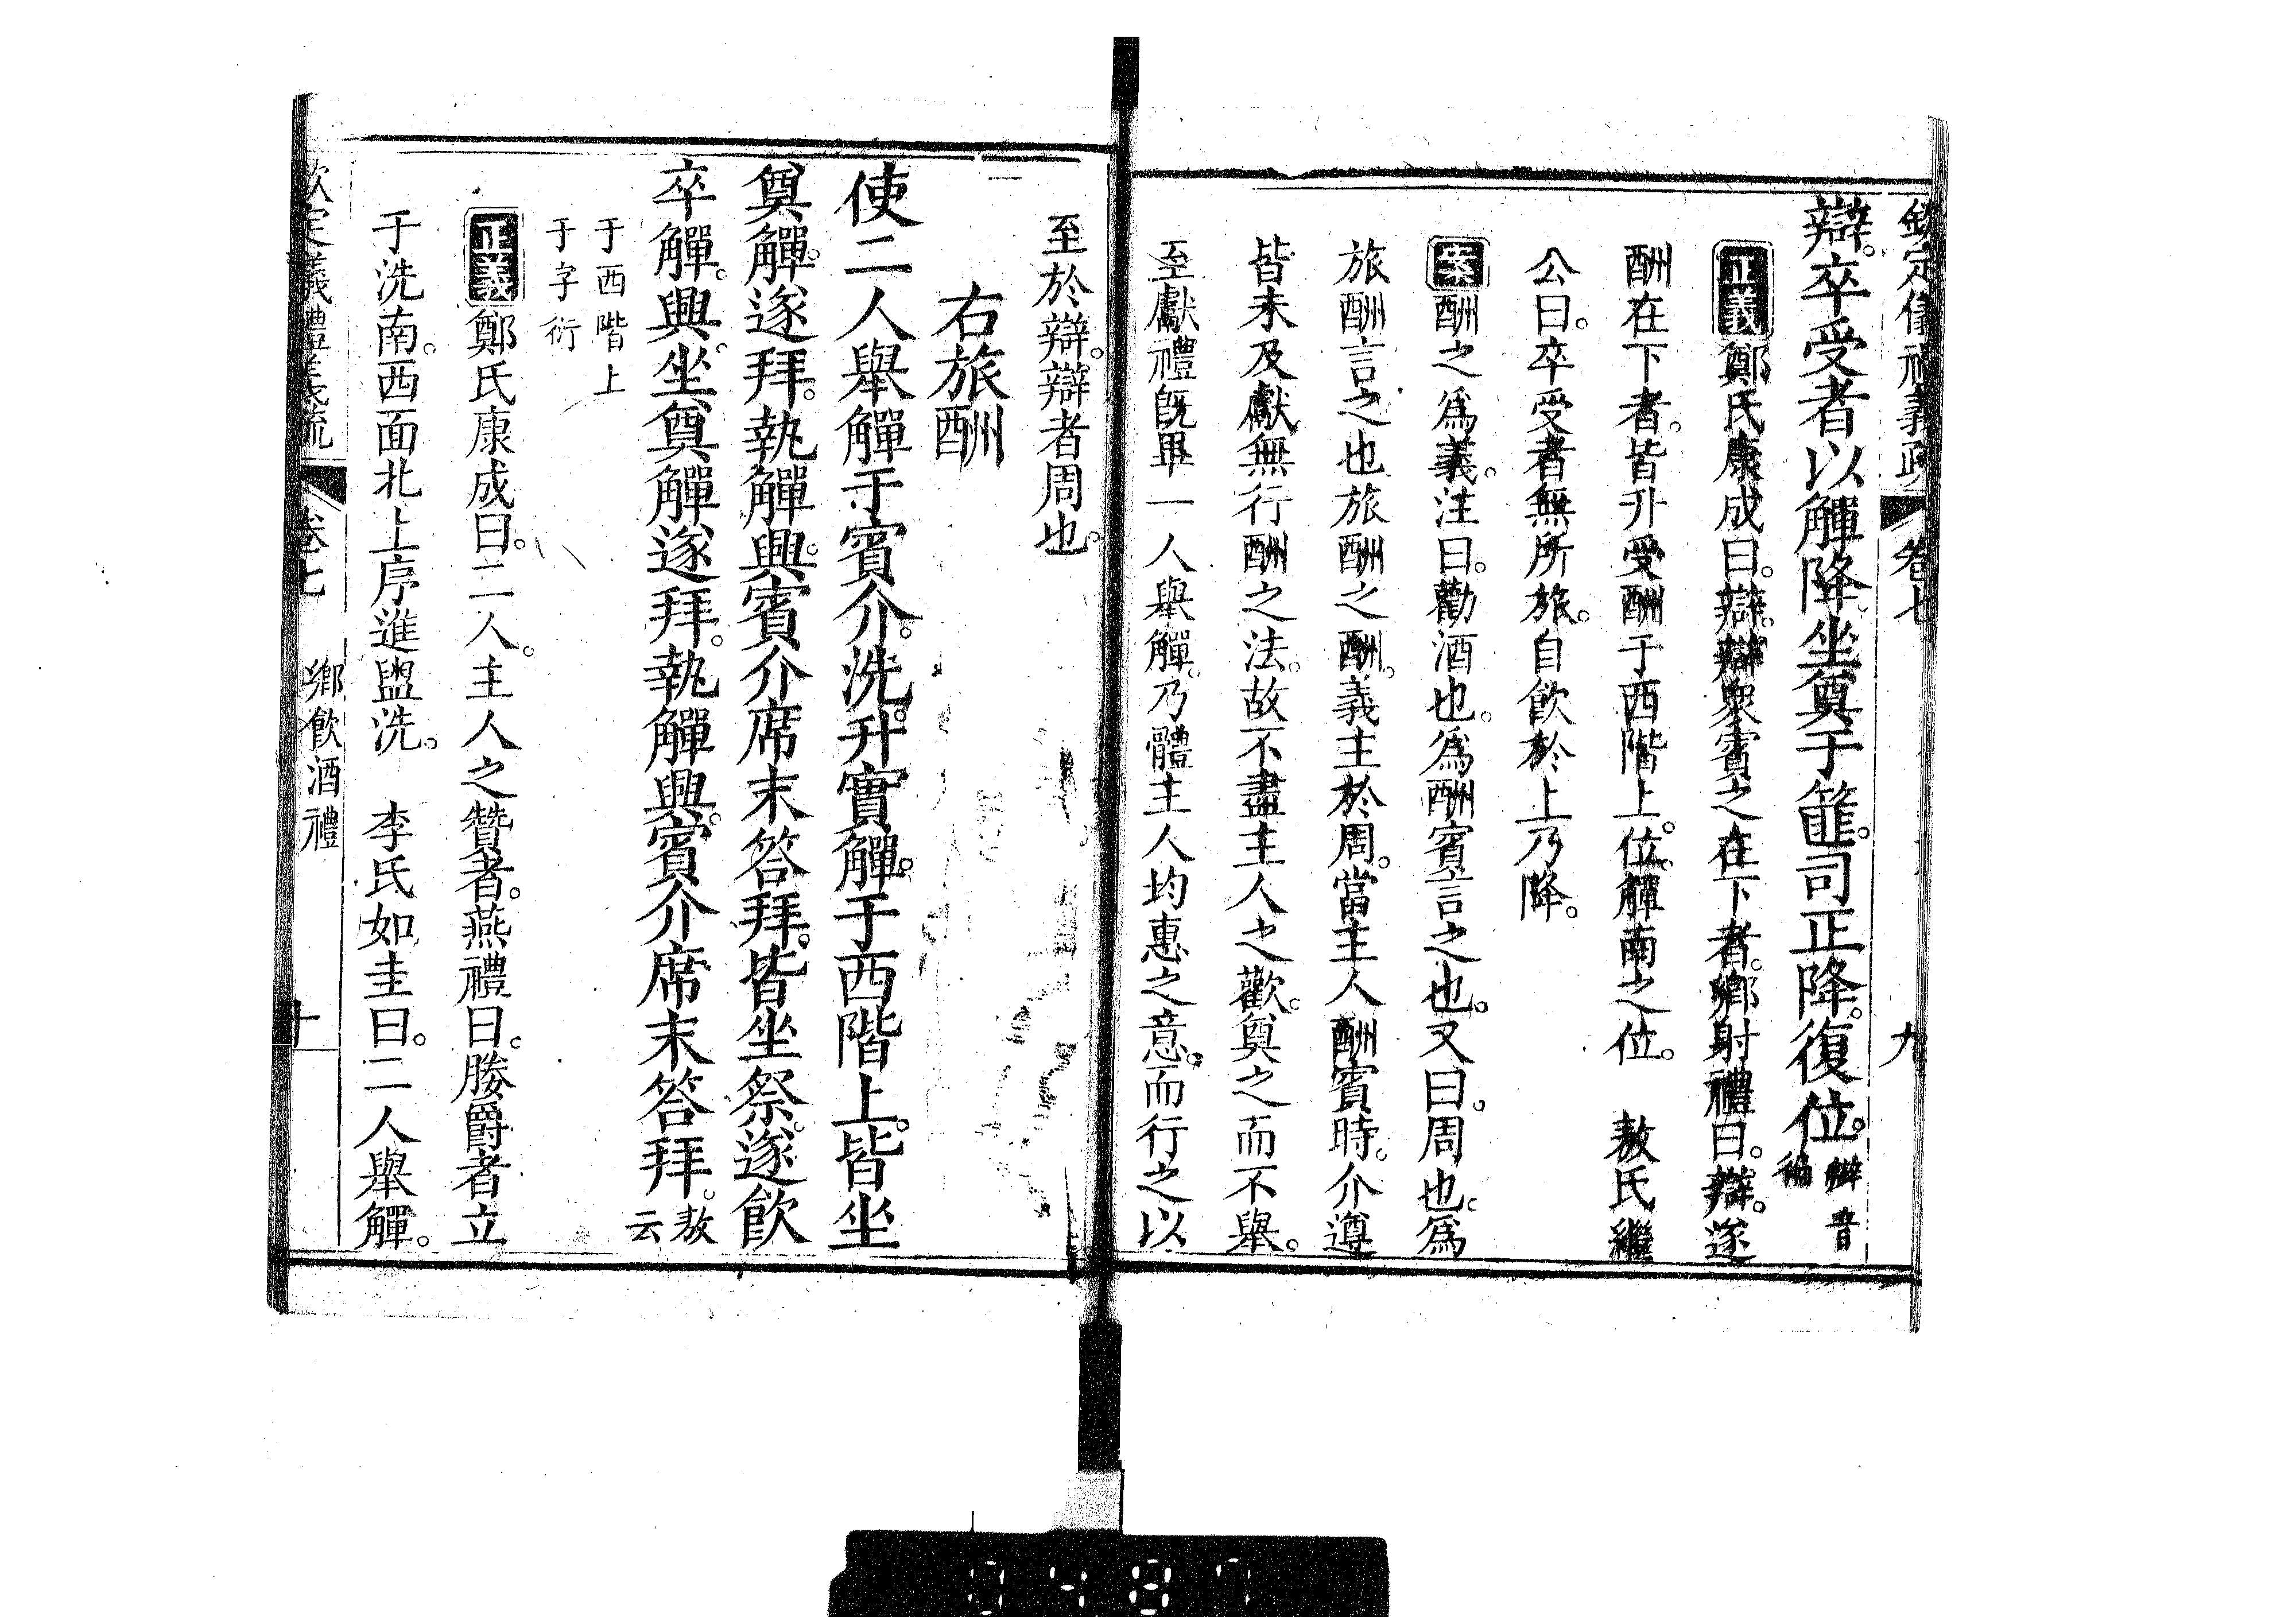 欽定儀禮義疏 卷七 九
辯。卒受者以觶降。坐奠于篚。司正降。復位。辯音
徧
正義鄭氏康成曰。辯。辯衆賓之在下者。鄉射禮曰。辯。遂
酬在下者。皆升受酬于西階上。位。觶南之位。 敖氏繼
公曰。卒受者無所旅。自飲於上乃降。
案酬之爲義。注曰。勸酒也。爲酬賓言之也。又曰。周也。爲
旅酬言之也旅酬之酬。義主於周。當主人酬賓時。介遵
皆未及獻。無行酬之法。故不盡主人之歡。奠之而不舉。
至獻禮旣畢一人舉觶。乃體主人均惠之意。而行之以
至於辯。辯者周也。
右旅酬
使二人舉觶于賓介。洗。升實觶。于西階上。皆坐
奠觶。遂拜。執觶興。賓介席末答拜。皆坐祭。遂飲
卒觶。興。坐奠觶遂拜。執觶興。賓介席末答拜。敖
云
于西階上
于字衍
正義鄭氏康成曰。二人。主人之贊者。燕禮曰。媵爵者立
于洗南。西面北上序進盥洗。 李氏如圭曰。二人舉觶。
欽定儀禮義疏 卷七 鄉飲酒禮 十